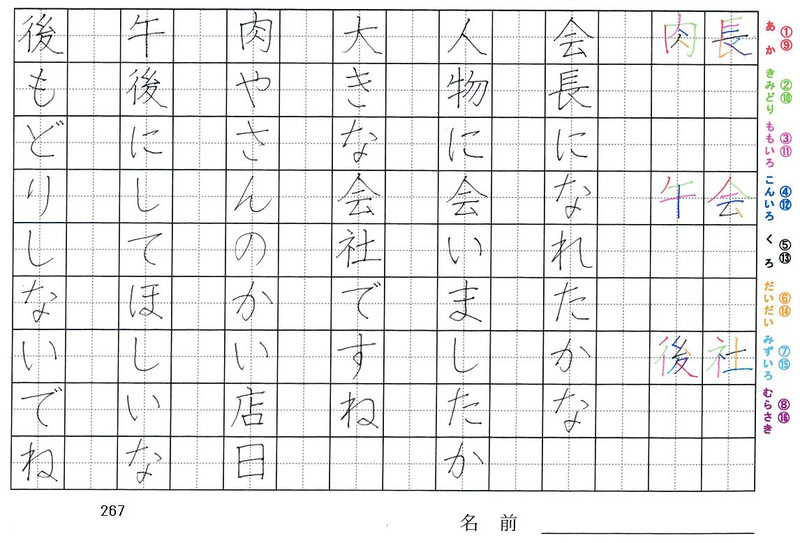 ①⑨
あか
②⑩
きみどり
③⑪
ももいろ
④⑫
こんいろ
⑤⑬
くろ
⑥⑭
だいだい
⑦⑮
みずいろ
⑧⑯
むらさき
長会社
肉午後
会長になれたかな
人物に会いましたか
大きな会社ですね
肉やさんのかい店日
午後にしてほしいな
後もどりしないでね
267
名前